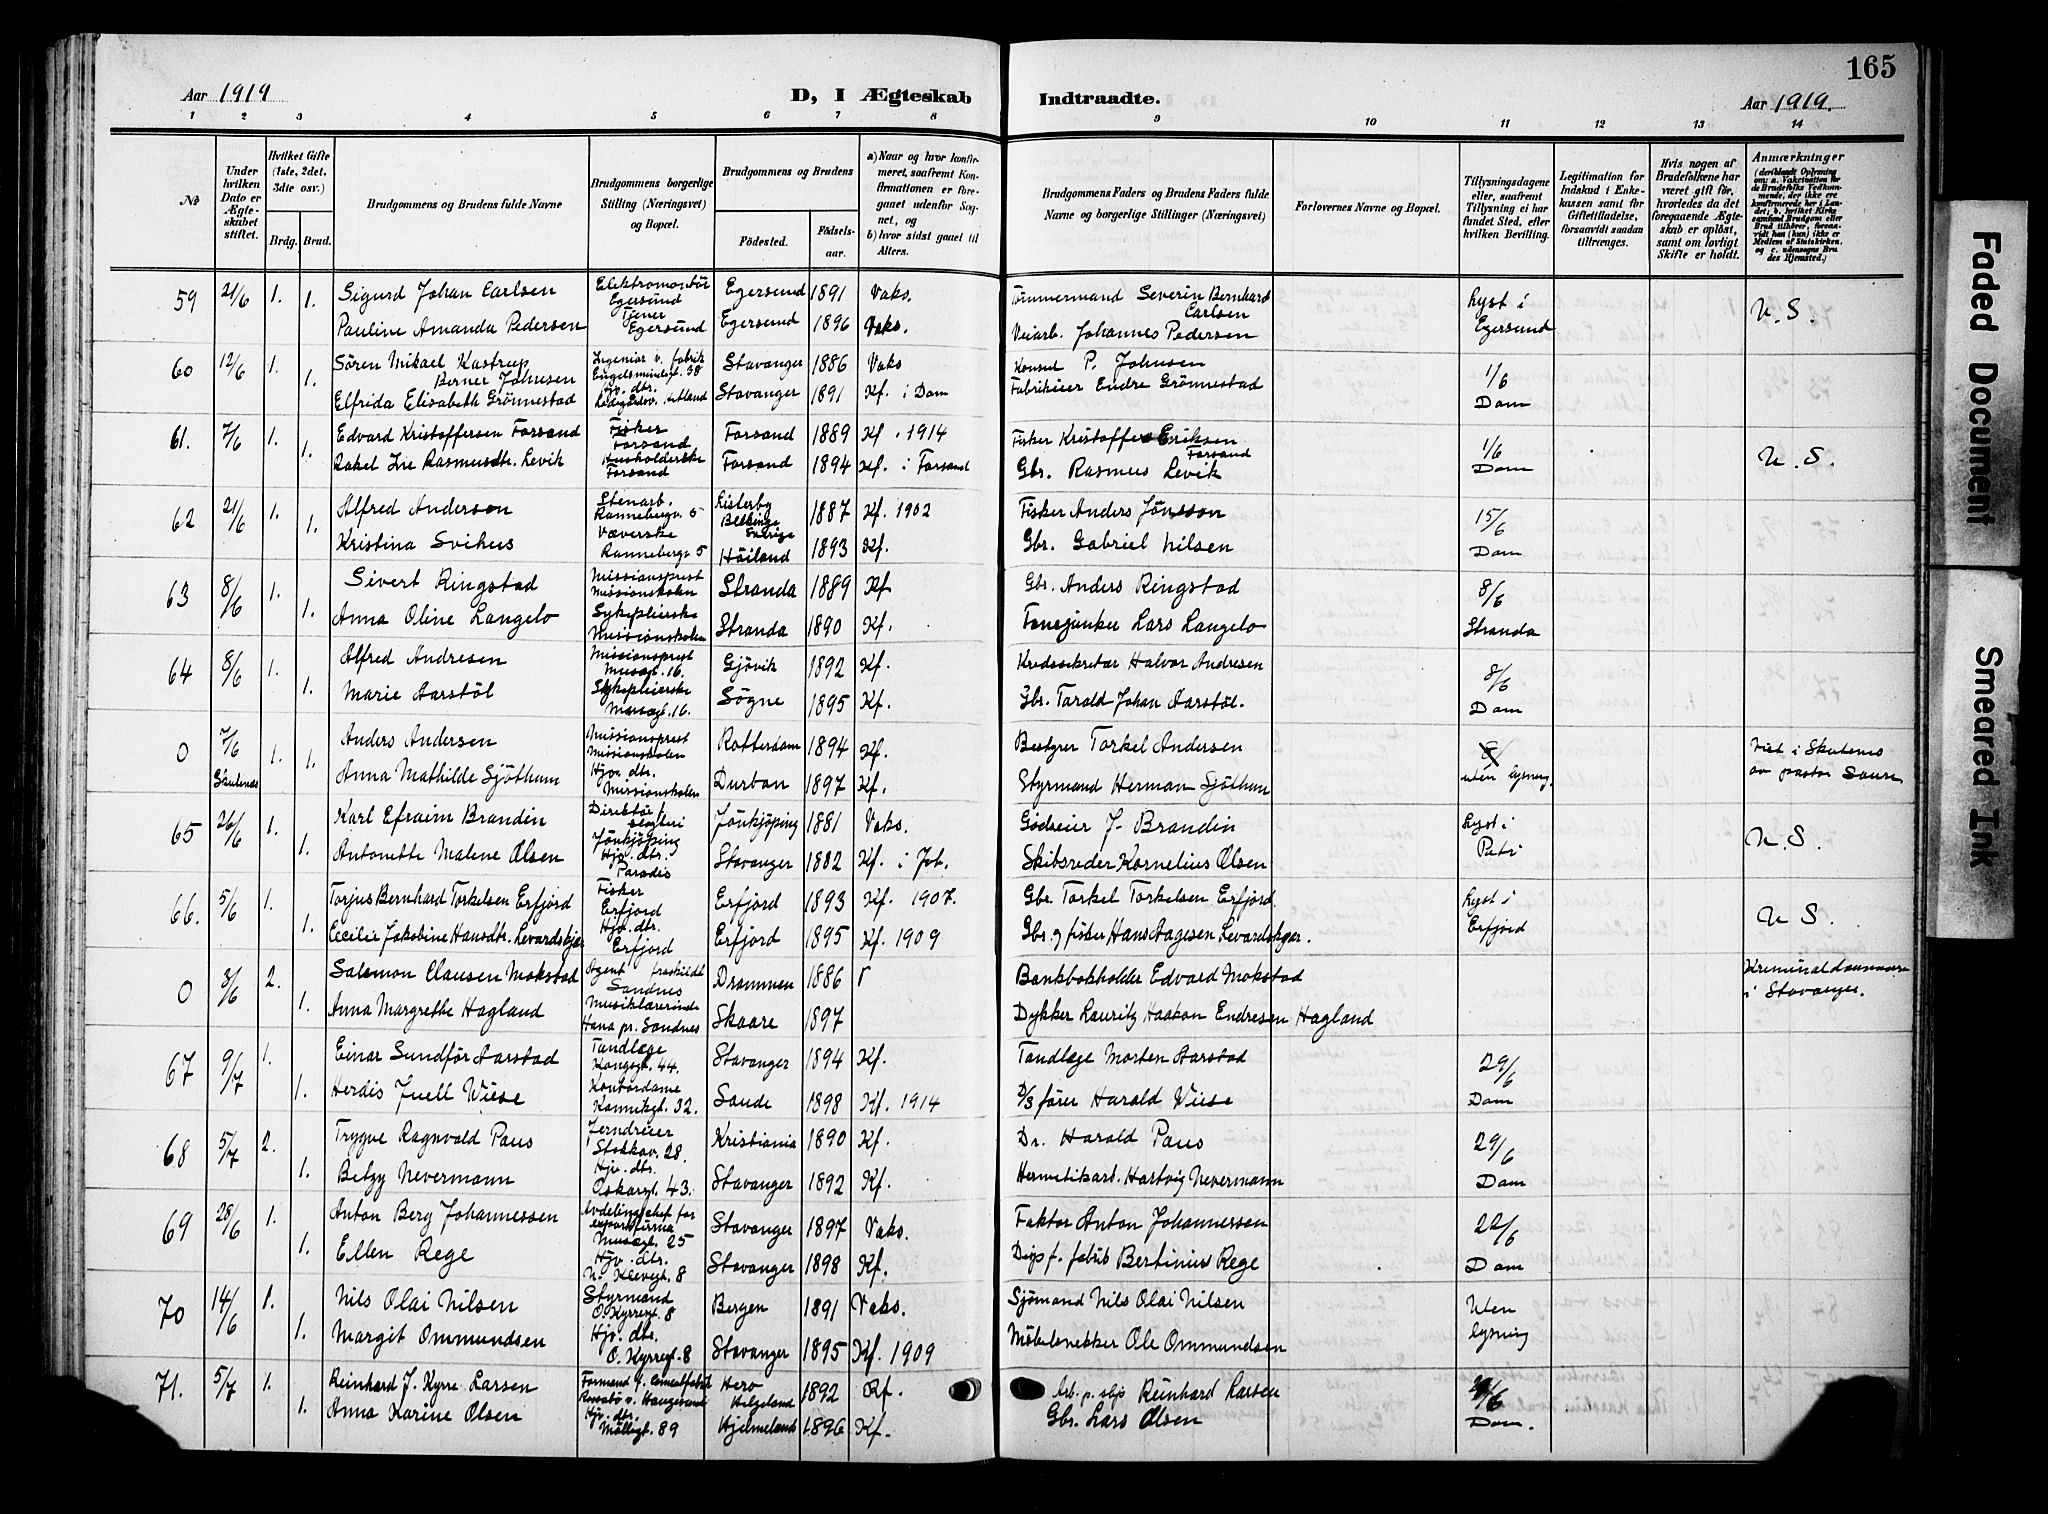 165
Aar 1919
D, I Ægteskab
Indtraadte.
Aar 1919.
1 2 3 4 5 6 7 8 9 10 11 12 13 14
No
Under hvilken Dato er Ægteskabet stiftet.
Hvilket Gifte (1ste, 2det, 3die osv.)
Brdg. Brud.
Brudgommens og Brudens fulde Navne
Brudgommens borgerlige Stilling (Næringsvei) og Bopæl.
Brudgommens og Brudens
Fødested. Fødselsaar.
a) Naar og hvor konfirmeret, saafremt Konfirmationen er foregaaet udenfor Sognet, og b) hvor sidst gaaet til Alters.
Brudgommens Faders og Brudens Faders fulde Navne og borgerlige Stillinger (Næringsvei)
Forlovernes Navne og Bopæl.
Tillysningsdagene eller, saafremt Tillysning ei har fundet Sted, efter hvilken Bevilling.
Legitimation for Indskud i Enkekassen samt for Giftetilladelse, forsaavidt saadan tiltrænges.
Hvis nogen af Brudefolkene har været gift før, hvorledes da det foregaaende Ægteskab er opløst, samt om lovligt Skifte er holdt.
Anmærkninger (deriblandt Oplysning om: a. Vaccination for de Brudefolks Vedkommende, der ikke ere konfirmerede her i Landet; b. hvilket Kirkesamfund Brudgom eller Brud tilhører, forsaavidt han (hun) ikke er Medlem af Statskirken, og c. udensogns Brudes Hjemsted.)
59 21/6 1. Sigurd Johan Carlsen Elektromontør Egersund Egersund 1891 Vaks. Tømmermand Severin Bernhard Carlsen Lyst i Egersund U.S.
1. Pauline Amanda Pedersen Tjener Egersund Egersund 1896 Vaks. Veiarb. Johannes Pedersen
60 12/6 1. Sören Mikael Kastrup Berner Johnsen Ingeniør v. fabrik Engelsmindegt. 38 Stavanger 1886 Vaks Konsul P. Johnsen 1/6 Dom
1. Elfrida Elisabeth Grönnestad Hjv. dtr. Stavanger 1891 Kf. i Dom Fabrikeier Endre Grönnestad
61. 7/6 1. Edvard Kristoffersen Forsand Fisker Forsand Forsand 1889 Kf. 1914 Fisker Kristoffer Eriksen Forsand 1/6 Dom U.S.
1. Rakel Rasmusdtr. Levik Husholderske Forsand Forsand 1894 Kf. i Forsand Gbr. Rasmus Levik
62 21/6 1. Alfred Anderson Stenarb. Rannebergv. 5 Listerby Blekinge Sverige 1887 Kf. 1902 Fisker Anders Jönsson 15/6 Dom
1. Kristina Svihus Væverske Rannebergv 5 Höiland 1893 Kf. Gbr. Gabriel Nilsen
63 8/6 1. Sivert Ringstad Missionsprest Missionskolen Stranda 1889 Kf Gbr. Anders Ringstad 8/6 Stranda
1. Anna Oline Langelo Sykepleierske Missionskolen Stranda 1890 Kf. Lars Langelo
64 8/6 1. Alfred Andresen Missionsprest Museegt. 16. Gjövik 1892 Kf. Kredssekretær Halvor Andresen 8/6 Dom
1. Marie Aarstöl Sykepleierske Museegt. 16. Søgne 1895 Kf. Gbr. Tarald Johan Aarstöl.
0 7/6 Skutenes 1. Anders Andersen Missionsprest Missionskolen Rotterdam 1894 Kf. Bestyrer Torkel Andersen uten lysning. Viet i Skutenes av pastor
1. Anna Mathilde Sjöthun Hjv. dtr. Missionskolen Durban 1897 Kf. Styrmand Herman Sjöthun
65 26/6 1. Karl Efraim Brandin Direktør i slagteri Jönkjöping Jönkjöping 1881 Vaks. Godseier J. Brandin Lyst i Petri U.S.
1. Antonette Malene Olsen Hjv. dtr. Paradis Stavanger 1882 Kf. i Joh. Skibsreder Kornelius Olsen
66. 5/6 1. Torjus Bernhard Torkelsen Erfjord Fisker Erfjord Erfjord 1893 Kf. 1907. Gbr. Torkel Torkelsen Erfjord. Lyst i Erfjord U S.
1. Cecilie Jakobine Hansdtr. Levardskjær Hjv. dtr. Erfjord Erfjord 1895 Kf. 1909 Gbr. og fisker Hans Aagesen Levardskjær.
0 3/6 2. Salomon Clausen Mokstad Agent fraskildt Sandnes Drammen 1886 Bankbokholder Edvard Mokstad Kriminaldommere i Stavanger.
1. Anna Margrethe Hagland Musiklærerinde Hana pr. Sandnes Skaare 1897 Dykker Lauritz Haakon Endresen Hagland
67 9/7 1. Einar Sundför Aarstad Tandlæge Kongsgt. 44. Stavanger 1894 Kf. Tandlæge Morten Aarstad 29/6 Dom
1. Herdis Juell Wiese Kontordame Kannikgt. 32. Sande 1898 Kf. 1914 D/S fører Harald Wiese
68 5/7 2. Trygve Ragnvald Paus Jerndreier Stokkav. 28. Kristiania 1890 Kf. Dr. Harald Paus 29/6 Dom
1. Betzy Nevermann Hjv. dtr. Oskarsgt. 43. Stavanger 1892 Kf. Hermetikarb. Hartvig Nevermann
69 28/6 1. Anton Berg Johannessen Avdelingschef for exportfirma Museegt. 25 Stavanger 1897 Vaks. Faktor Anton Johannessen 22/6 Dom
1. Ellen Rege Hjv. dtr. N. Klevegt. 8 Stavanger 1898 Kf. Disp. f. fabrik Bertinius Rege
70 14/6 1. Nils Olai Nilsen Styrmand O. Kyrresgt. 8 Bergen 1891 Vaks. Sjömand Nils Olai Nilsen Uten lysning
1. Margit Ommundsen Hjv. dtr. O. Kyrregt. 8 Stavanger 1895 Kf. 1909 Möbelsnekker Ole Ommundsen
71. 5/7 1. Reinhard J. Kyrre Larsen Formand Haugesund Herø Helgeland 1892 Kf. Arb. Reinhard Larsen 29/6 Dom.
1. Anna Karine Olsen Hjv. dtr. Möllegt. 89 Hjelmeland 1896 Kf. Gbr. Lars Olsen
Faded Document
Smeared Ink